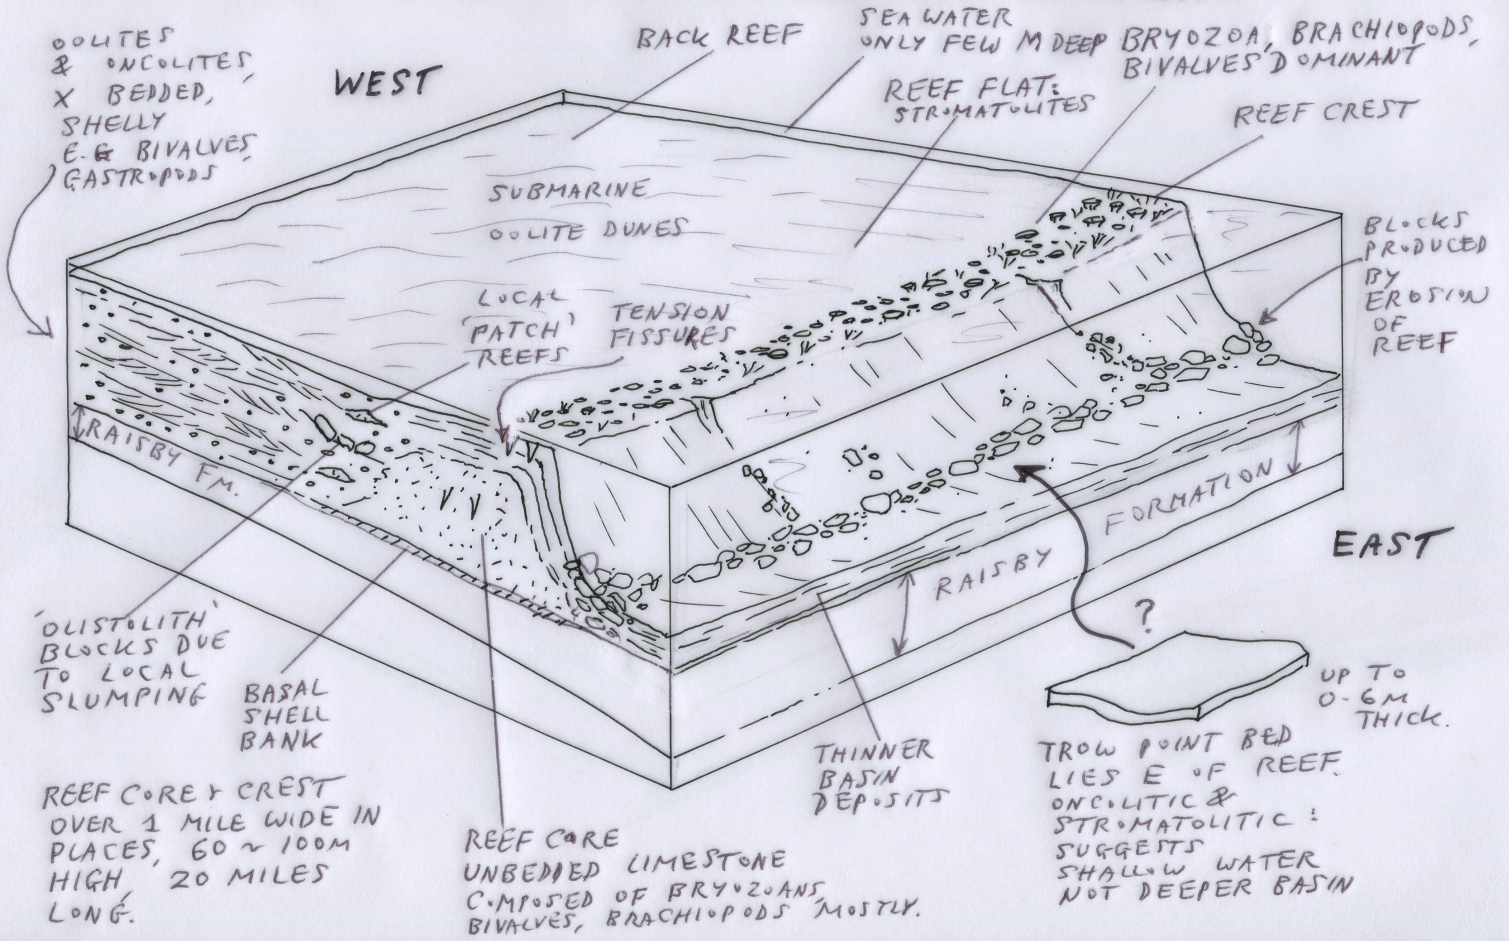 OOLITES
& ONCOLITES,
X BEDDED,
SHELLY
E.G BIVALVES,
GASTROPODS
WEST
BACK REEF
SEA WATER
ONLY FEW M DEEP
BRYOZOA, BRACHIOPODS,
BIVALVES DOMINANT
REEF FLAT:
STROMATOLITES
REEF CREST
SUBMARINE
OOLITE DUNES
BLOCKS
PRODUCED
BY
EROSION
OF
REEF
LOCAL
'PATCH'
REEFS
TENSION
FISSURES
RAISBY FM.
RAISBY FORMATION
EAST
?
'OLISTOLITH'
BLOCKS DUE
TO LOCAL
SLUMPING
BASAL
SHELL
BANK
THINNER
BASIN
DEPOSITS
UP TO
0.6M
THICK.
TROW POINT BED
LIES E OF REEF.
ONCOLITIC &
STROMATOLITIC:
SUGGESTS
SHALLOW WATER
NOT DEEPER BASIN
REEF CORE & CREST
OVER 1 MILE WIDE IN
PLACES, 60 ~ 100M
HIGH, 20 MILES
LONG.
REEF CORE
UNBEDDED LIMESTONE
COMPOSED OF BRYOZOANS,
BIVALVES, BRACHIOPODS MOSTLY.